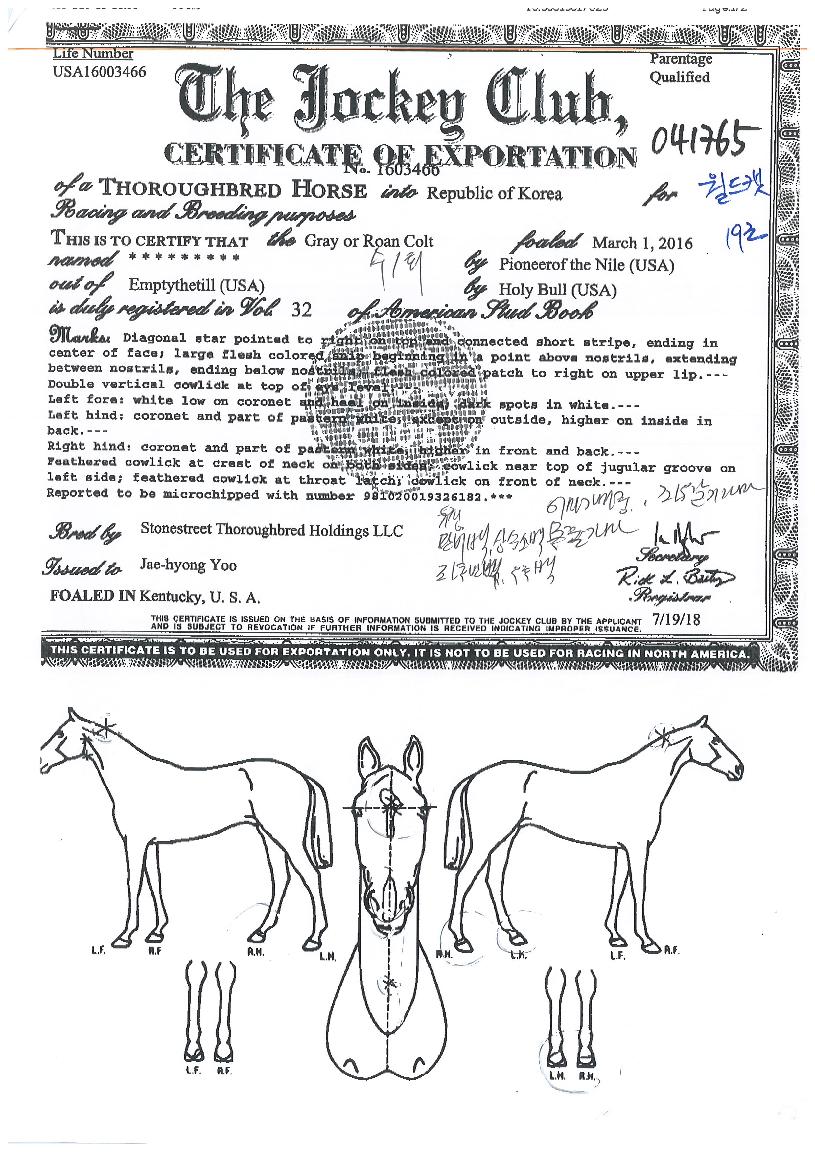 Life Number
USA16003466
Parentage
Qualified
The Jockey Club,
CERTIFICATE OF EXPORTATION
041765
No. 1603466
of a THOROUGHBRED HORSE into Republic of Korea for
월드캣
Racing and Breeding purposes
THIS IS TO CERTIFY THAT the Gray or Roan Colt foaled March 1, 2016
named * * * * * * * * * by Pioneerof the Nile (USA)
out of Emptythetill (USA) by Holy Bull (USA)
is duly registered in Vol. 32 of American Stud Book
Marks: Diagonal star pointed to right on top and connected short stripe, ending in
center of face; large flesh colored snip beginning in a point above nostrils, extending
between nostrils, ending below nostrils; flesh colored patch to right on upper lip.---
Double vertical cowlick at top of eye level.
Left fore: white low on coronet and heel on inside; dark spots in white.---
Left hind: coronet and part of pastern white, except on outside, higher on inside in
back.---
Right hind: coronet and part of pastern white, higher in front and back.---
Feathered cowlick at crest of neck on both sides; cowlick near top of jugular groove on
left side; feathered cowlick at throat latch; cowlick on front of neck.---
Reported to be microchipped with number 981020019326182.***
Bred by Stonestreet Thoroughbred Holdings LLC
Secretary
Issued to Jae-hyong Yoo
Registrar
FOALED IN Kentucky, U. S. A.
THIS CERTIFICATE IS ISSUED ON THE BASIS OF INFORMATION SUBMITTED TO THE JOCKEY CLUB BY THE APPLICANT
AND IS SUBJECT TO REVOCATION IF FURTHER INFORMATION IS RECEIVED INDICATING IMPROPER ISSUANCE.
7/19/18
THIS CERTIFICATE IS TO BE USED FOR EXPORTATION ONLY. IT IS NOT TO BE USED FOR RACING IN NORTH AMERICA.
L.F. R.F R.H. L.H. R.H. L.H. L.F. R.F.
L.F. R.F. L.H. R.H.